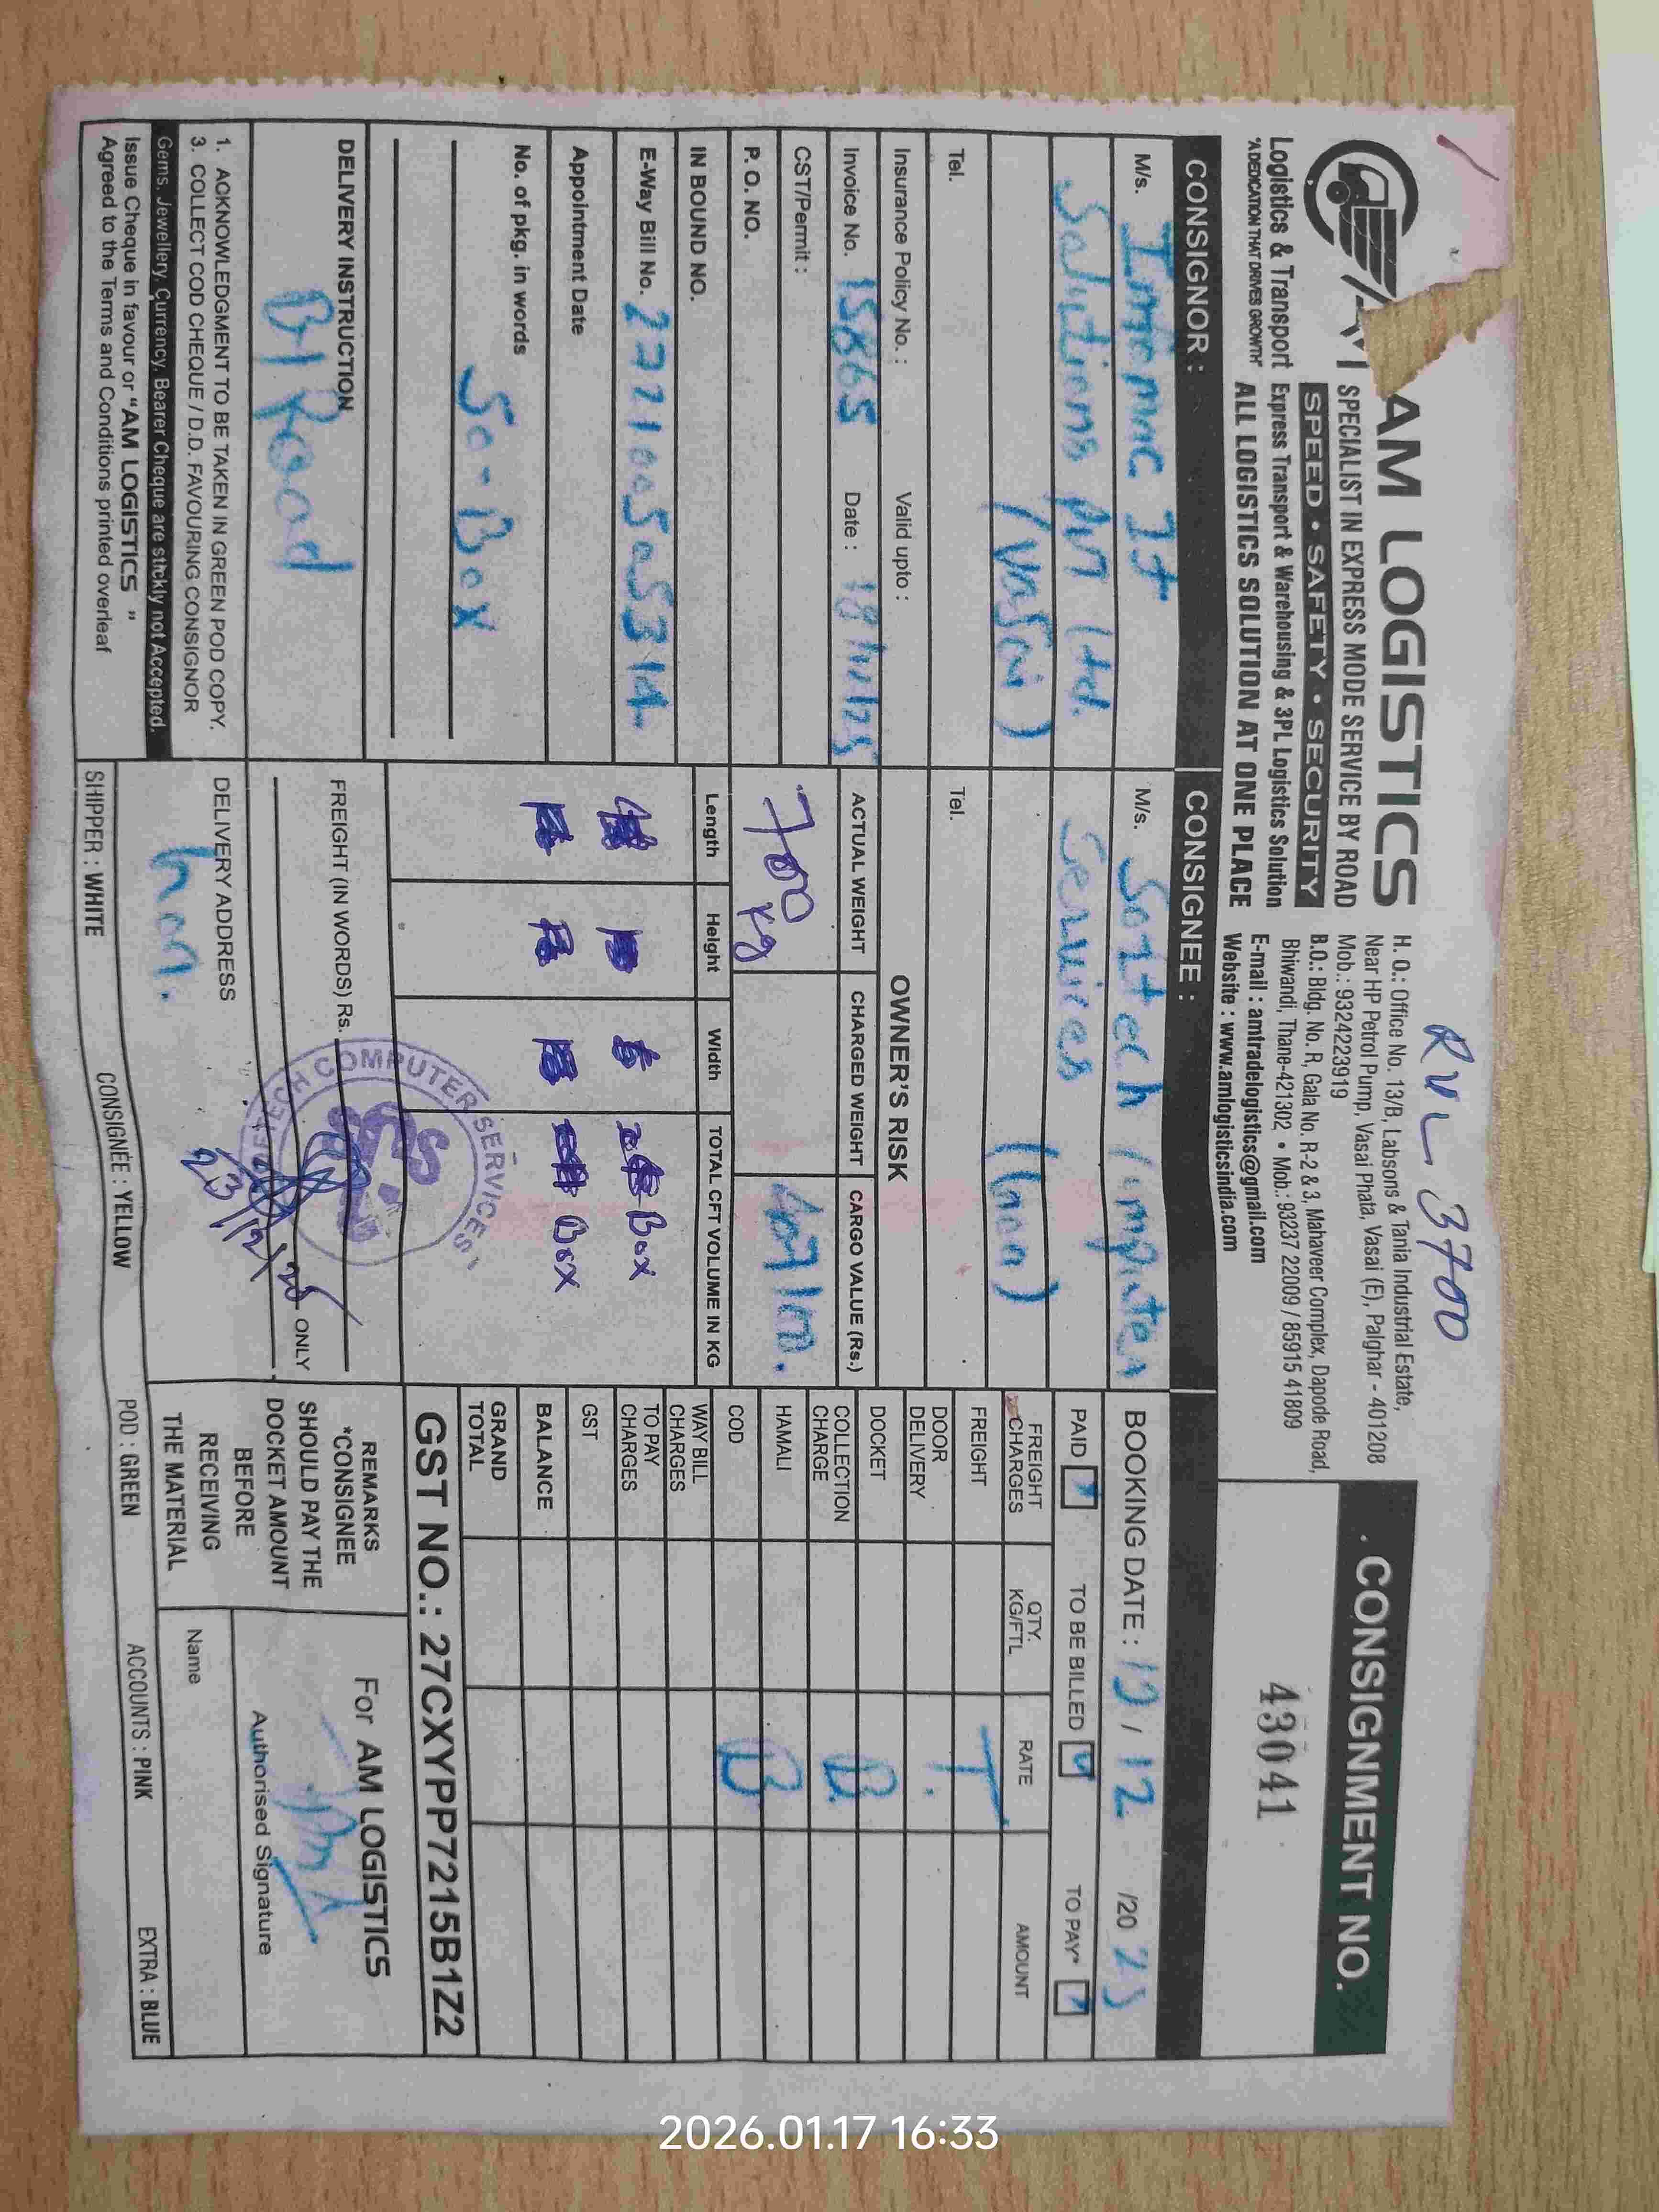 RVL 3700
AM LOGISTICS
SPECIALIST IN EXPRESS MODE SERVICE BY ROAD
SPEED • SAFETY • SECURITY
Logistics & Transport
Express Transport & Warehousing & 3PL Logistics Solution
"A DEDICATION THAT DRIVES GROWTH"
ALL LOGISTICS SOLUTION AT ONE PLACE
H. O.: Office No. 13/B, Labsons & Tania Industrial Estate,
Near HP Petrol Pump, Vasai Phata, Vasai (E), Palghar - 401208
Mob.: 9324223919
B.O.: Bldg. No. R, Gala No. R-2 & 3, Mahaveer Complex, Dapode Road,
Bhiwandi, Thane-421302 • Mob.: 93237 22009 / 85915 41809
E-mail : amtradelogistics@gmail.com
Website : www.amlogisticsindia.com
CONSIGNMENT NO.
43041
CONSIGNOR :
M/s.
Solutions Pvt Ltd.
(Vasai)
Tel.
Insurance Policy No. : Valid upto :
Invoice No. 15665 Date :
CST/Permit :
P. O. NO.
IN BOUND NO.
E-Way Bill No.
Appointment Date
No. of pkg. in words
50-Box
DELIVERY INSTRUCTION
By Road
1. ACKNOWLEDGMENT TO BE TAKEN IN GREEN POD COPY.
3. COLLECT COD CHEQUE / D.D. FAVOURING CONSIGNOR
Gems, Jewellery, Currency, Bearer Cheque are stickly not Accepted.
Issue Cheque in favour or "AM LOGISTICS "
Agreed to the Terms and Conditions printed overleaf
CONSIGNEE :
M/s. Softech Computer
Services
Tel.
OWNER'S RISK
ACTUAL WEIGHT CHARGED WEIGHT CARGO VALUE (Rs.)
700 kg
Length Height Width TOTAL CFT VOLUME IN KG
Box
Box
FREIGHT (IN WORDS) Rs.
ONLY
COMPUTER SERVICES
SCS
DELIVERY ADDRESS
23/12/25
BOOKING DATE : 19 / 12 /20 25
PAID TO BE BILLED TO PAY*
FREIGHT CHARGES QTY. KG/FTL RATE AMOUNT
FREIGHT T
DOOR DELIVERY
DOCKET
COLLECTION CHARGE B.
HAMALI
COD B
WAY BILL CHARGES
TO PAY CHARGES
GST
BALANCE
GRAND TOTAL
GST NO.: 27CXYPP7215B1Z2
REMARKS
*CONSIGNEE
SHOULD PAY THE
DOCKET AMOUNT
BEFORE
RECEIVING
THE MATERIAL
For AM LOGISTICS
Authorised Signature
Name
SHIPPER : WHITE CONSIGNEE : YELLOW POD : GREEN ACCOUNTS : PINK EXTRA : BLUE
2026.01.17 16:33